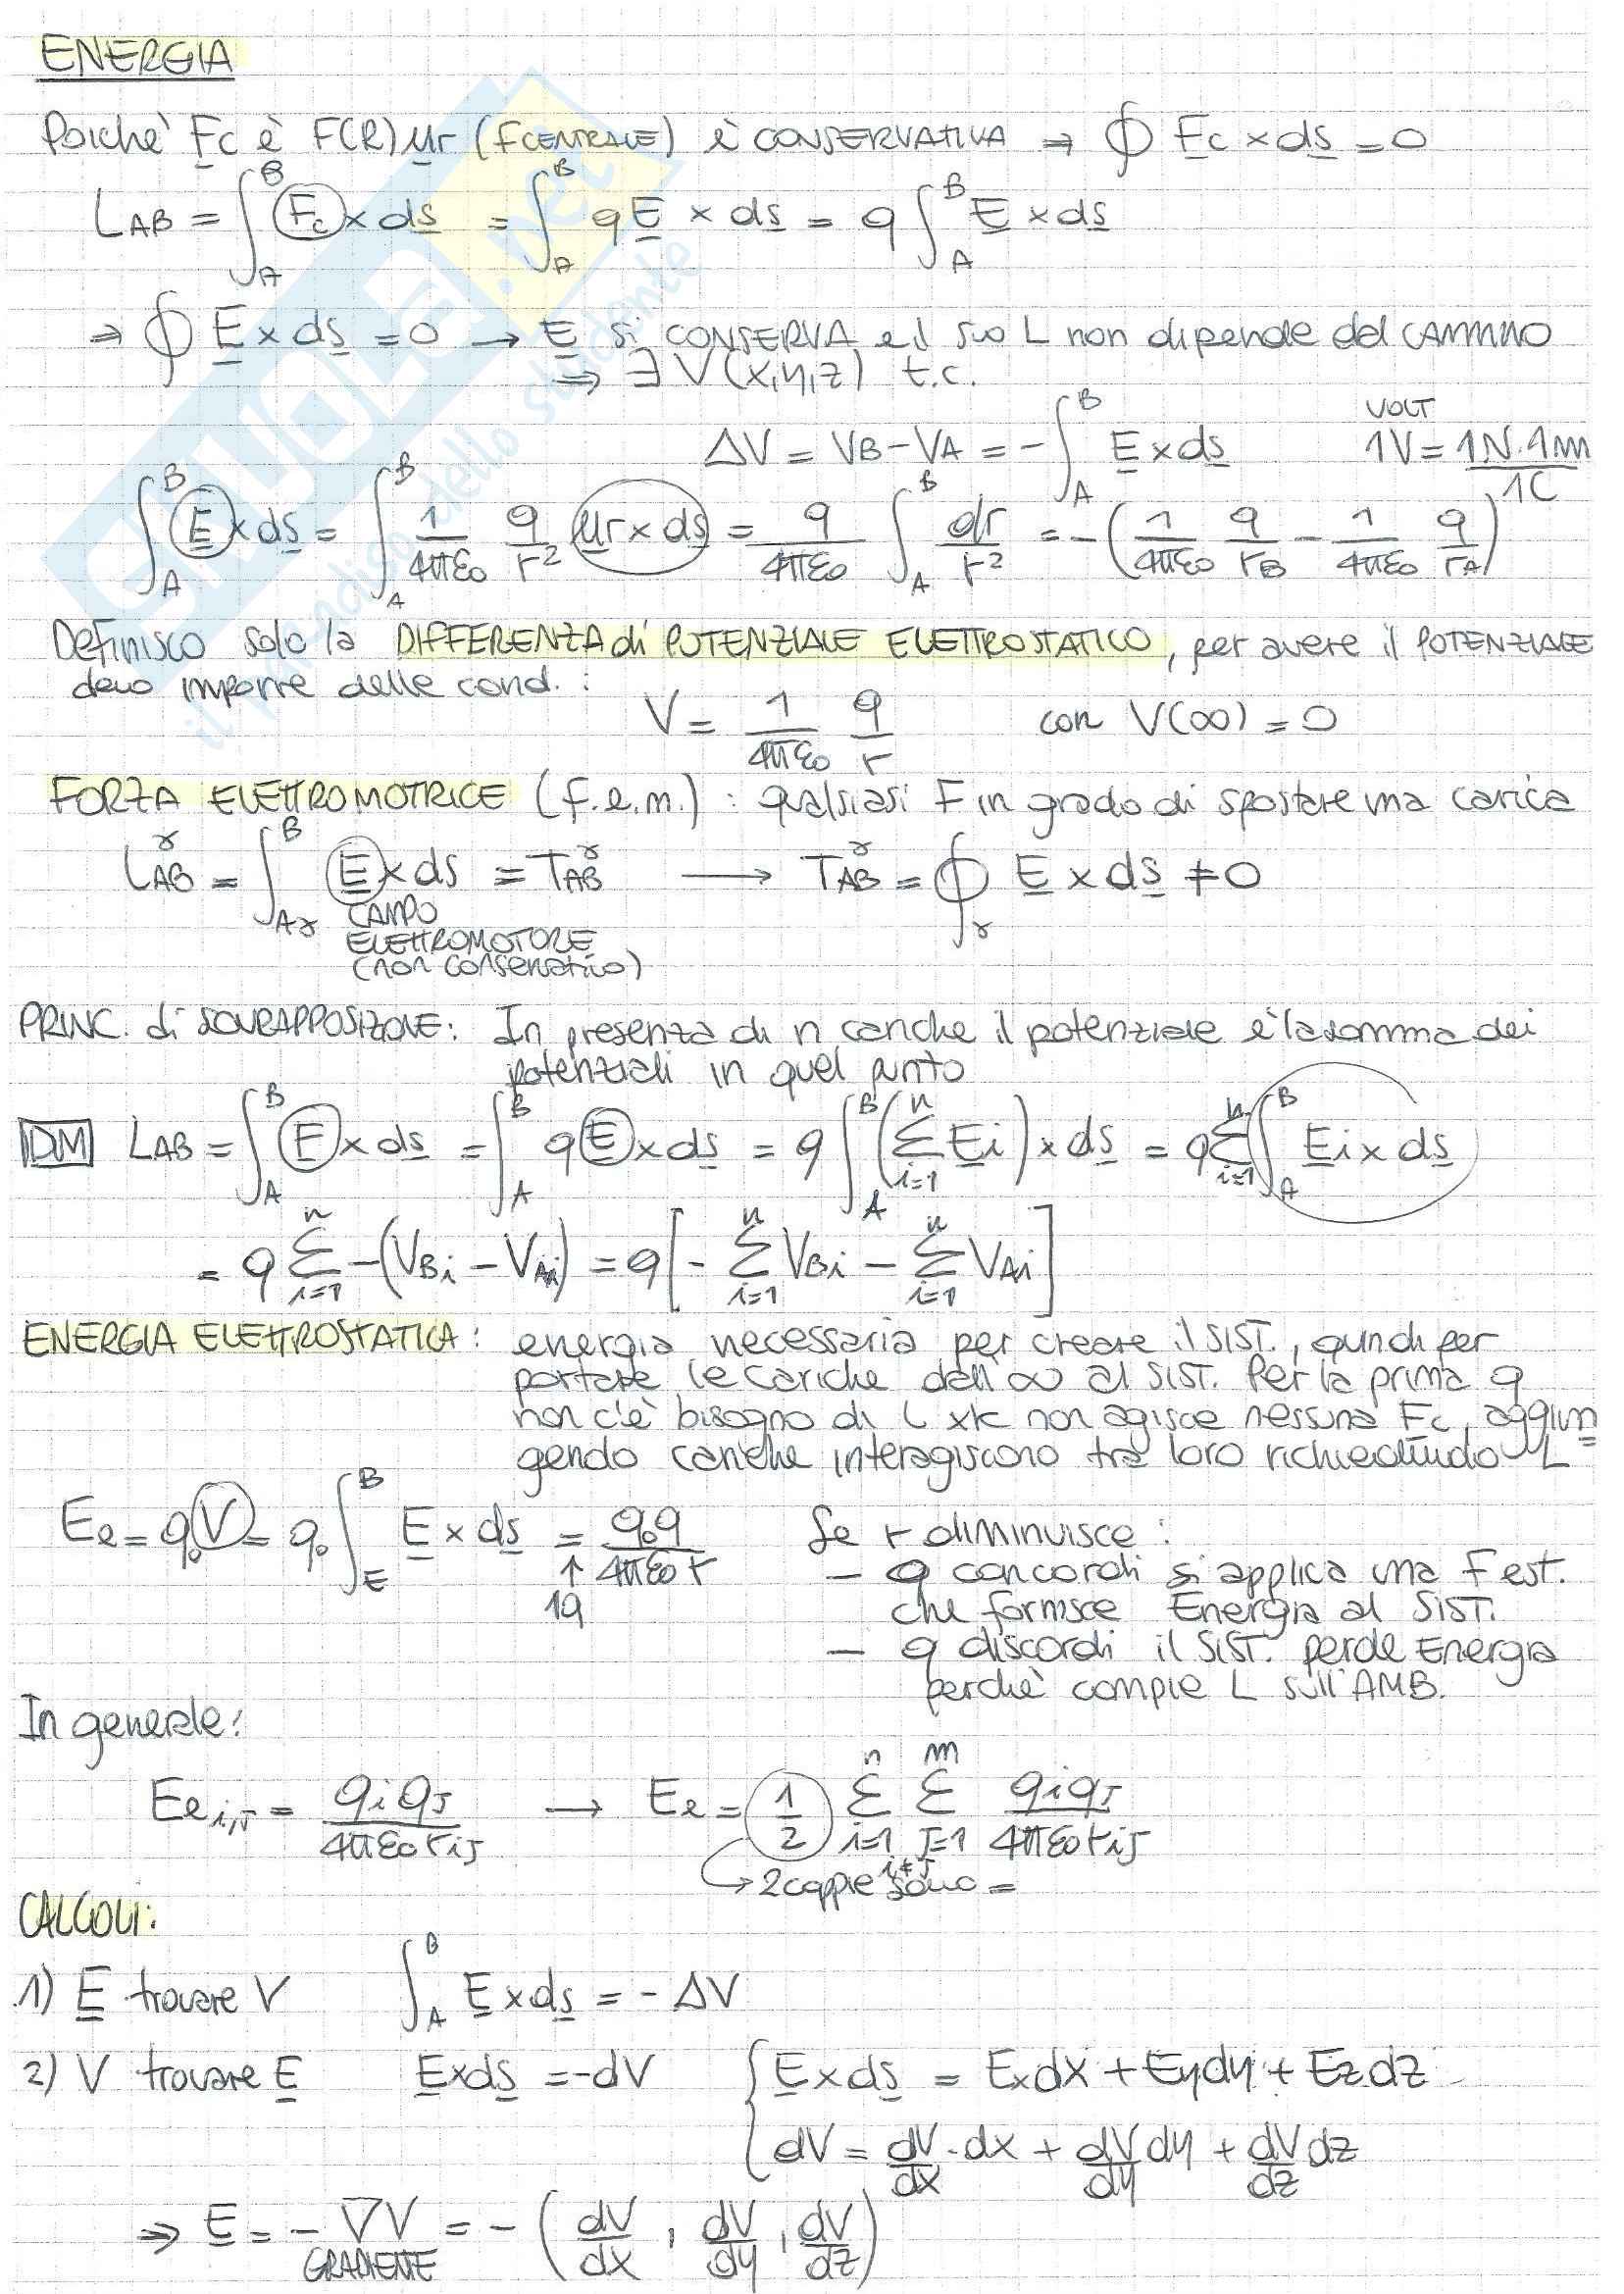 ENERGIA
Poichè Fc è F(R)ur (F CENTRALE) è CONSERVATIVA ⇒ ∮ Fc × ds = 0
L_AB = ∫_A^B Fc × ds = ∫_A^B qE × ds = q ∫_A^B E × ds
⇒ ∮ E × ds = 0 → E si CONSERVA e il suo L non dipende dal CAMMINO
⇒ ∃ V(x,y,z) t.c.
VOLT
ΔV = VB - VA = - ∫_A^B E × ds 1V = 1N·1m / 1C
∫_A^B E × ds = ∫_A^B 1/4πε0 q/r² ur × ds = q/4πε0 ∫_A^B dr/r² = - (1/4πε0 q/rB - 1/4πε0 q/rA)
Definisco solo la DIFFERENZA di POTENZIALE ELETTROSTATICO, per avere il POTENZIALE
devo imporre delle cond.:
V = 1/4πε0 q/r con V(∞) = 0
FORZA ELETTROMOTRICE (f.e.m.): qualsiasi F in grado di spostare una carica
L_AB^γ = ∫_Aγ^B E × ds = T_AB^γ → T_AB^γ = ∮_γ E × ds ≠ 0
CAMPO
ELETTROMOTORE
(non conservativo)
PRINC. di SOVRAPPOSIZIONE: In presenza di n cariche il potenziale è la somma dei
potenziali in quel punto
DM L_AB = ∫_A^B F × ds = ∫_A^B qE × ds = q ∫_A^B (Σ_{i=1}^n Ei) × ds = q Σ_{i=1}^n ∫_A^B Ei × ds
= q Σ_{i=1}^n -(VBi - VAi) = q [- Σ_{i=1}^n VBi - Σ_{i=1}^n VAi]
ENERGIA ELETTROSTATICA: energia necessaria per creare il SIST., quindi per
portare le cariche dall'∞ al SIST. Per la prima q
non c'è bisogno di L xk non agisce nessuna Fc, aggiun
gendo cariche interagiscono tra loro richiedendo L
Ee = q0V = q0 ∫_E^B E × ds = q0q / 4πε0r Se r diminuisce:
↑
1q
- q concordi si applica una F est.
che fornisce Energia al SIST.
- q discordi il SIST. perde Energia
perchè compie L sull'AMB.
In generale:
Ee i,j = qiqj / 4πε0rij → Ee = 1/2 Σ_{i=1}^n Σ_{j=1}^m qiqj / 4πε0rij
i≠j
→ 2 coppie sono =
CALCOLI:
1) E trovare V ∫_A^B E × ds = - ΔV
2) V trovare E E×ds = -dV { E × ds = Exdx + Eydy + Ezdz
dV = dV/dx · dx + dV/dy dy + dV/dz dz
⇒ E = - ∇V = - (dV/dx, dV/dy, dV/dz)
GRADIENTE